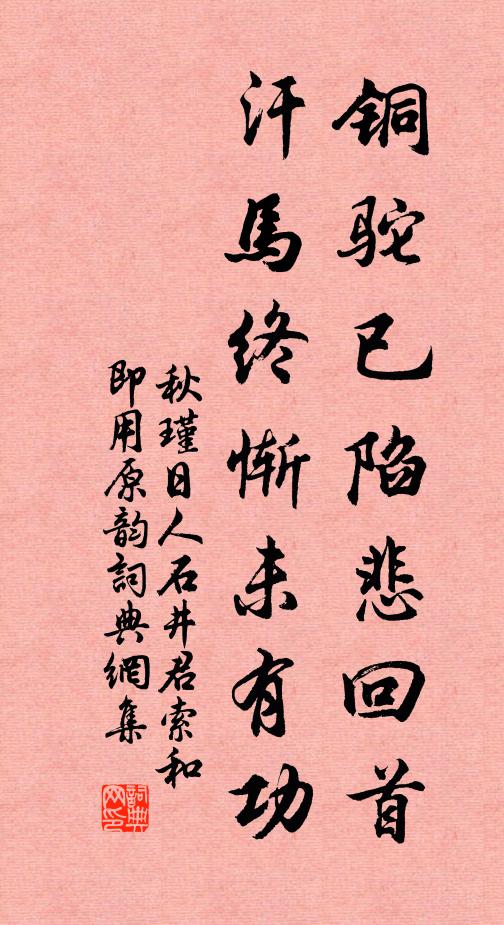 铜驼已陷悲回首
汗馬终惭未有功
秋瑾日人石井君索和
即用原韵詞典網集
詞典
网印